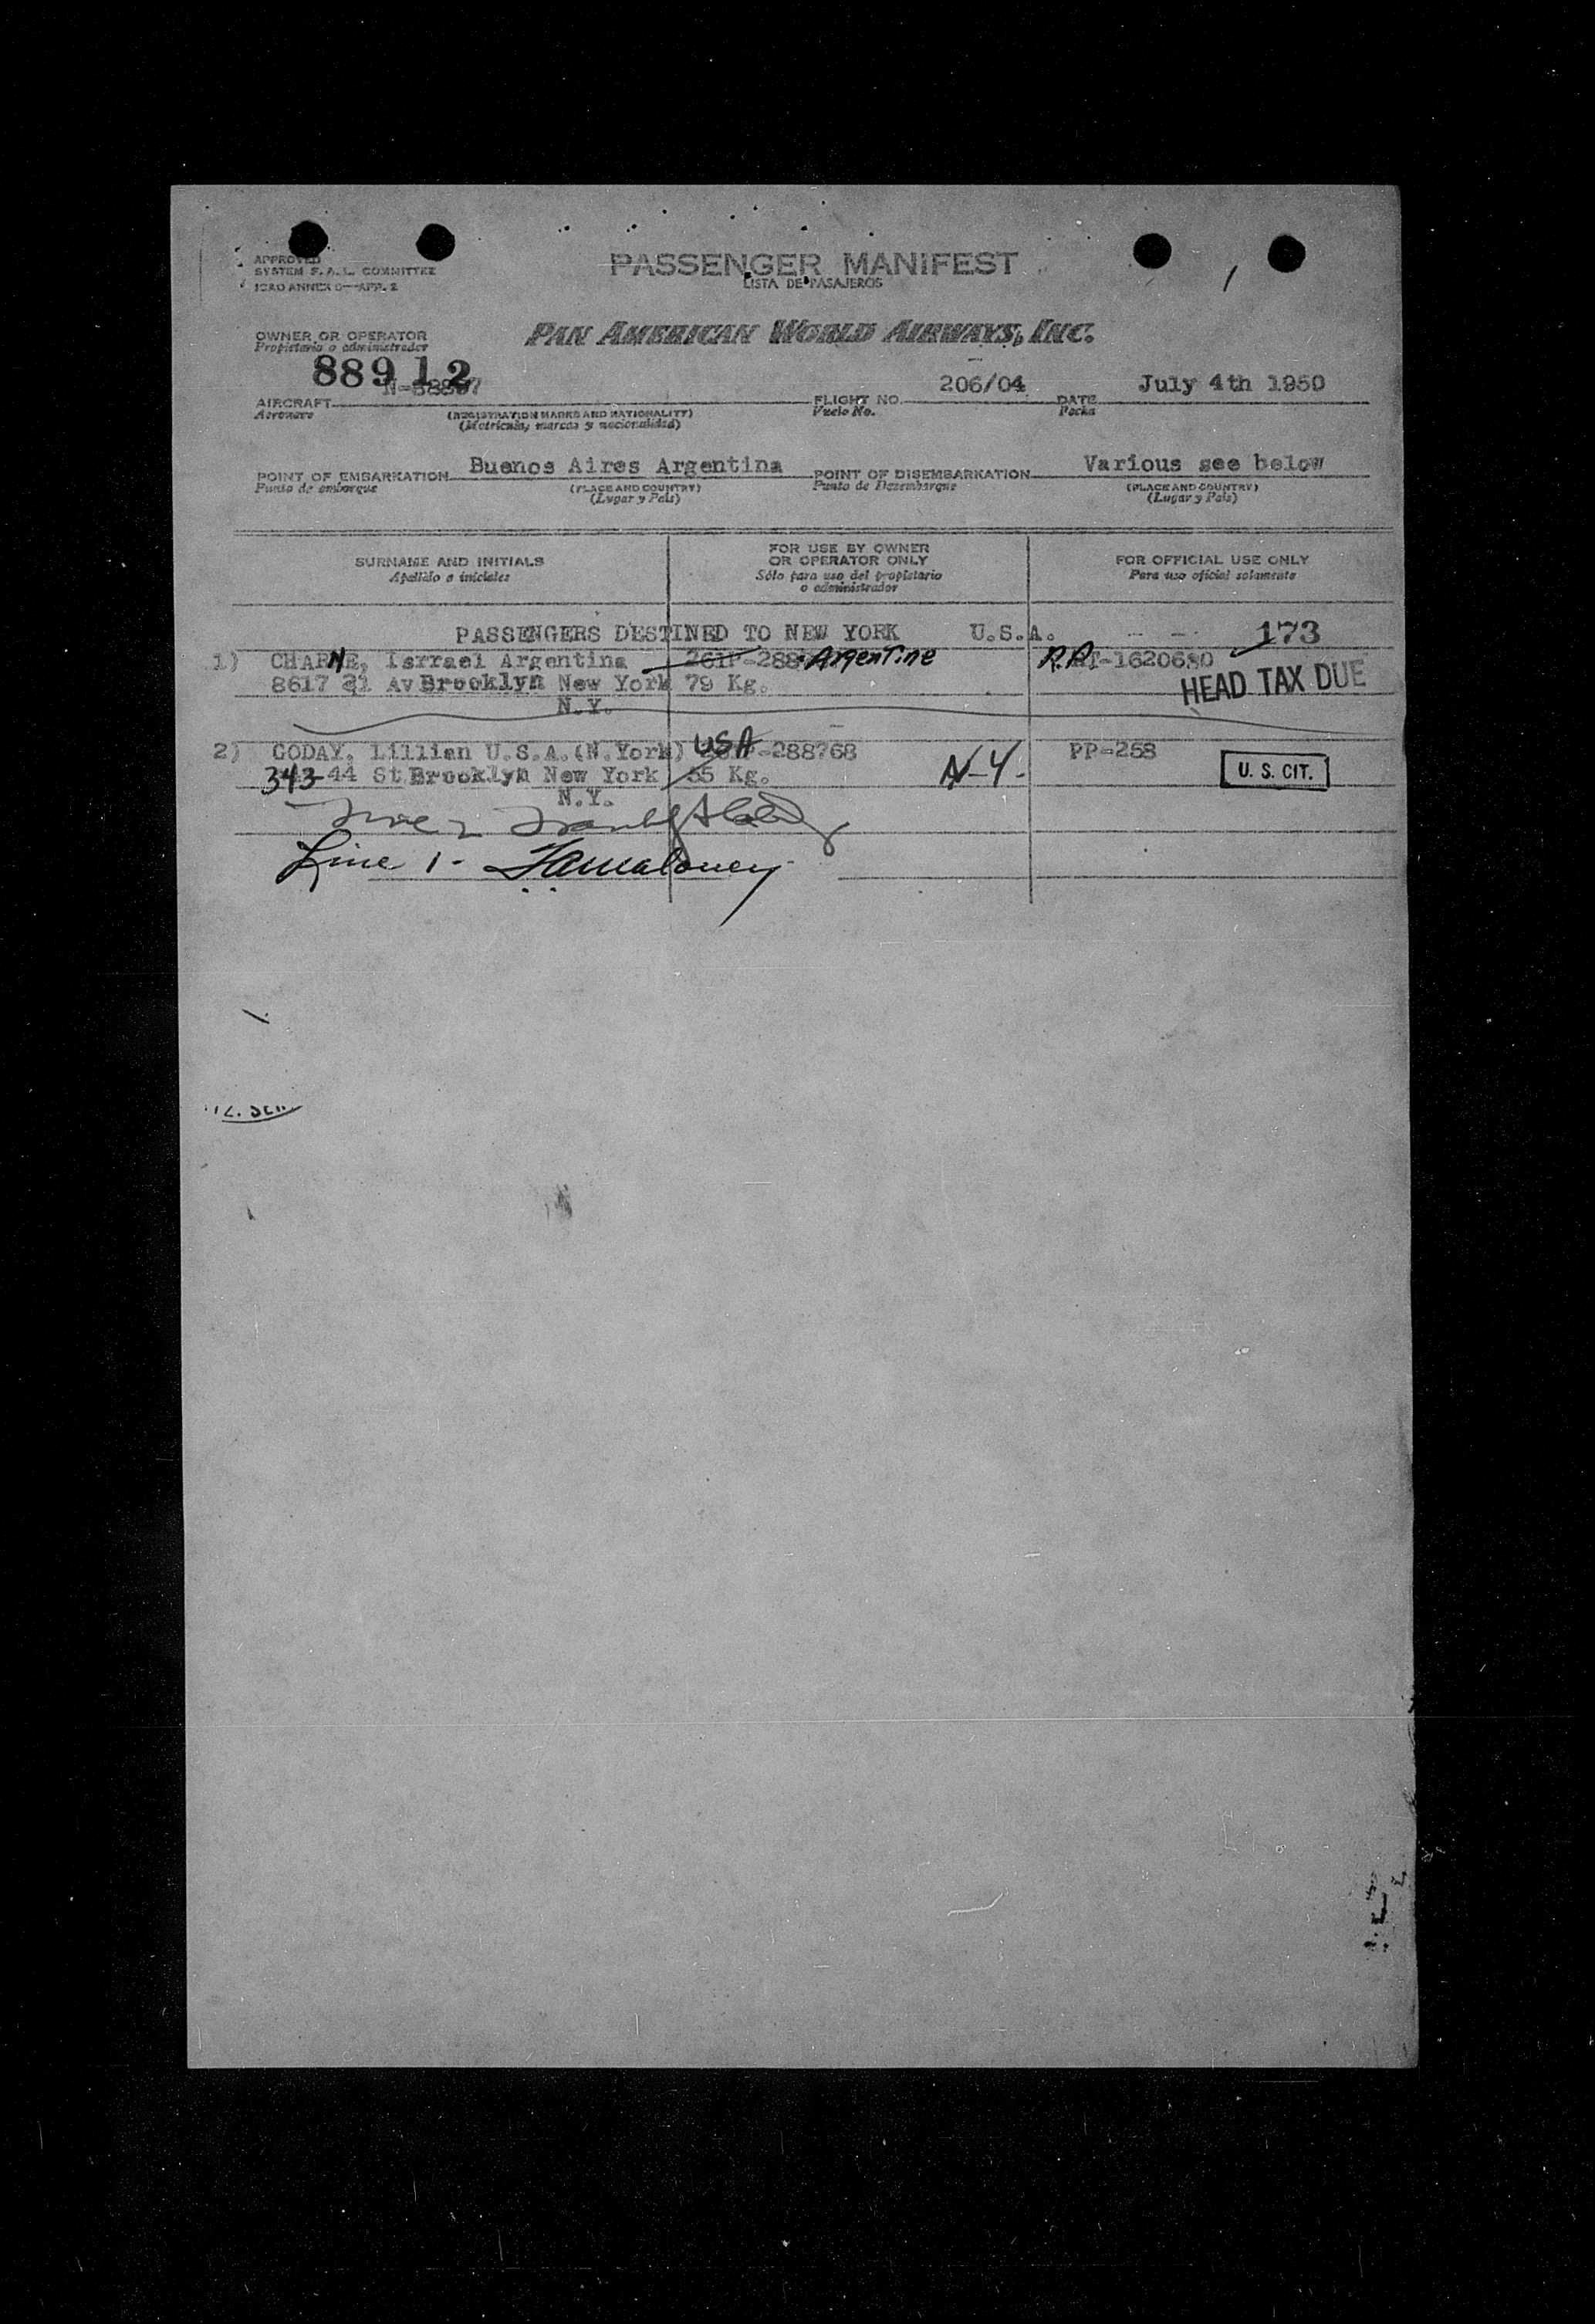 APPROVED
SYSTEM F. A. L. COMMITTEE
ICAO ANNEX 9—APP. 2
PASSENGER MANIFEST
LISTA DE PASAJEROS
OWNER OR OPERATOR
Propietario o administrador
PAN AMERICAN WORLD AIRWAYS, INC.
88912
AIRCRAFT
Aeronave
(REGISTRATION MARKS AND NATIONALITY)
(Matricula, marcas y nacionalidad)
FLIGHT NO. 206/04
Vuelo No.
DATE July 4th 1950
Fecha
POINT OF EMBARKATION Buenos Aires Argentina
Punto de embarque
(PLACE AND COUNTRY)
(Lugar y Pais)
POINT OF DISEMBARKATION Various see below
Punto de Desembarque
(PLACE AND COUNTRY)
(Lugar y Pais)
SURNAME AND INITIALS
Apellido e iniciales
FOR USE BY OWNER
OR OPERATOR ONLY
Sólo para uso del propietario
o administrador
FOR OFFICIAL USE ONLY
Para uso oficial solamente
PASSENGERS DESTINED TO NEW YORK U.S.A. - - - 173
1) CHARNE, Isrrael Argentina Argentine
8617 21 Av Brooklyn New York 79 Kg. HEAD TAX DUE
N.Y.
2) GODAY, Lillian U.S.A.(N.York) USA -288768 PP-258
343-44 St Brooklyn New York 55 Kg. N-4- U. S. CIT.
N.Y.
Line 2
Line 1-